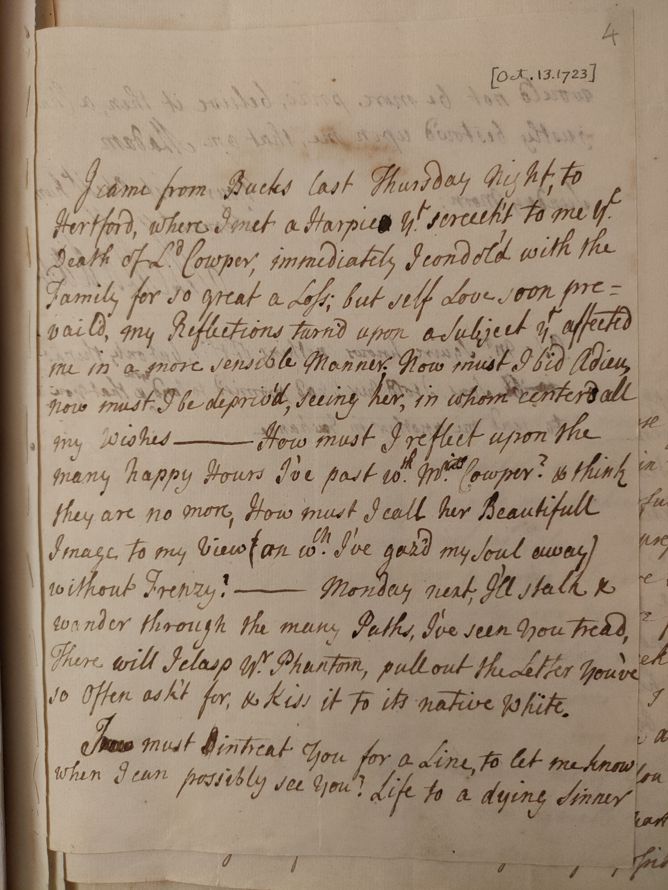 4
[Oct. 13. 1723]
I came from Bucks last Thursday Night, to
Hertford, where I met a Harpie yt screech't to me ye
Death of Ld Cowper, immediately I condol'd with the
Family for so great a Loss; but self Love soon pre=
vail'd, my Reflections turn'd upon a subject yt affected
me in a more sensible Manner; Now must I bid Adieu,
now must I be depriv'd, seeing her, in whom center'd all
my Wishes — How must I reflect upon the
many happy Hours I've past wth Mrs Cowper? & think
they are no more, How must I call her Beautifull
Image to my View (on wch I've gaz'd my soul away)
without Frenzy? — Monday next, I'll stalk &
wander through the many Paths, I've seen You tread,
There will I clasp Yr Phantom, pull out the Letter You've
so Often ask't for, & Kiss it to its native White.
must I intreat You for a Line, to let me know
when I can possibly see You? Life to a dying Sinner